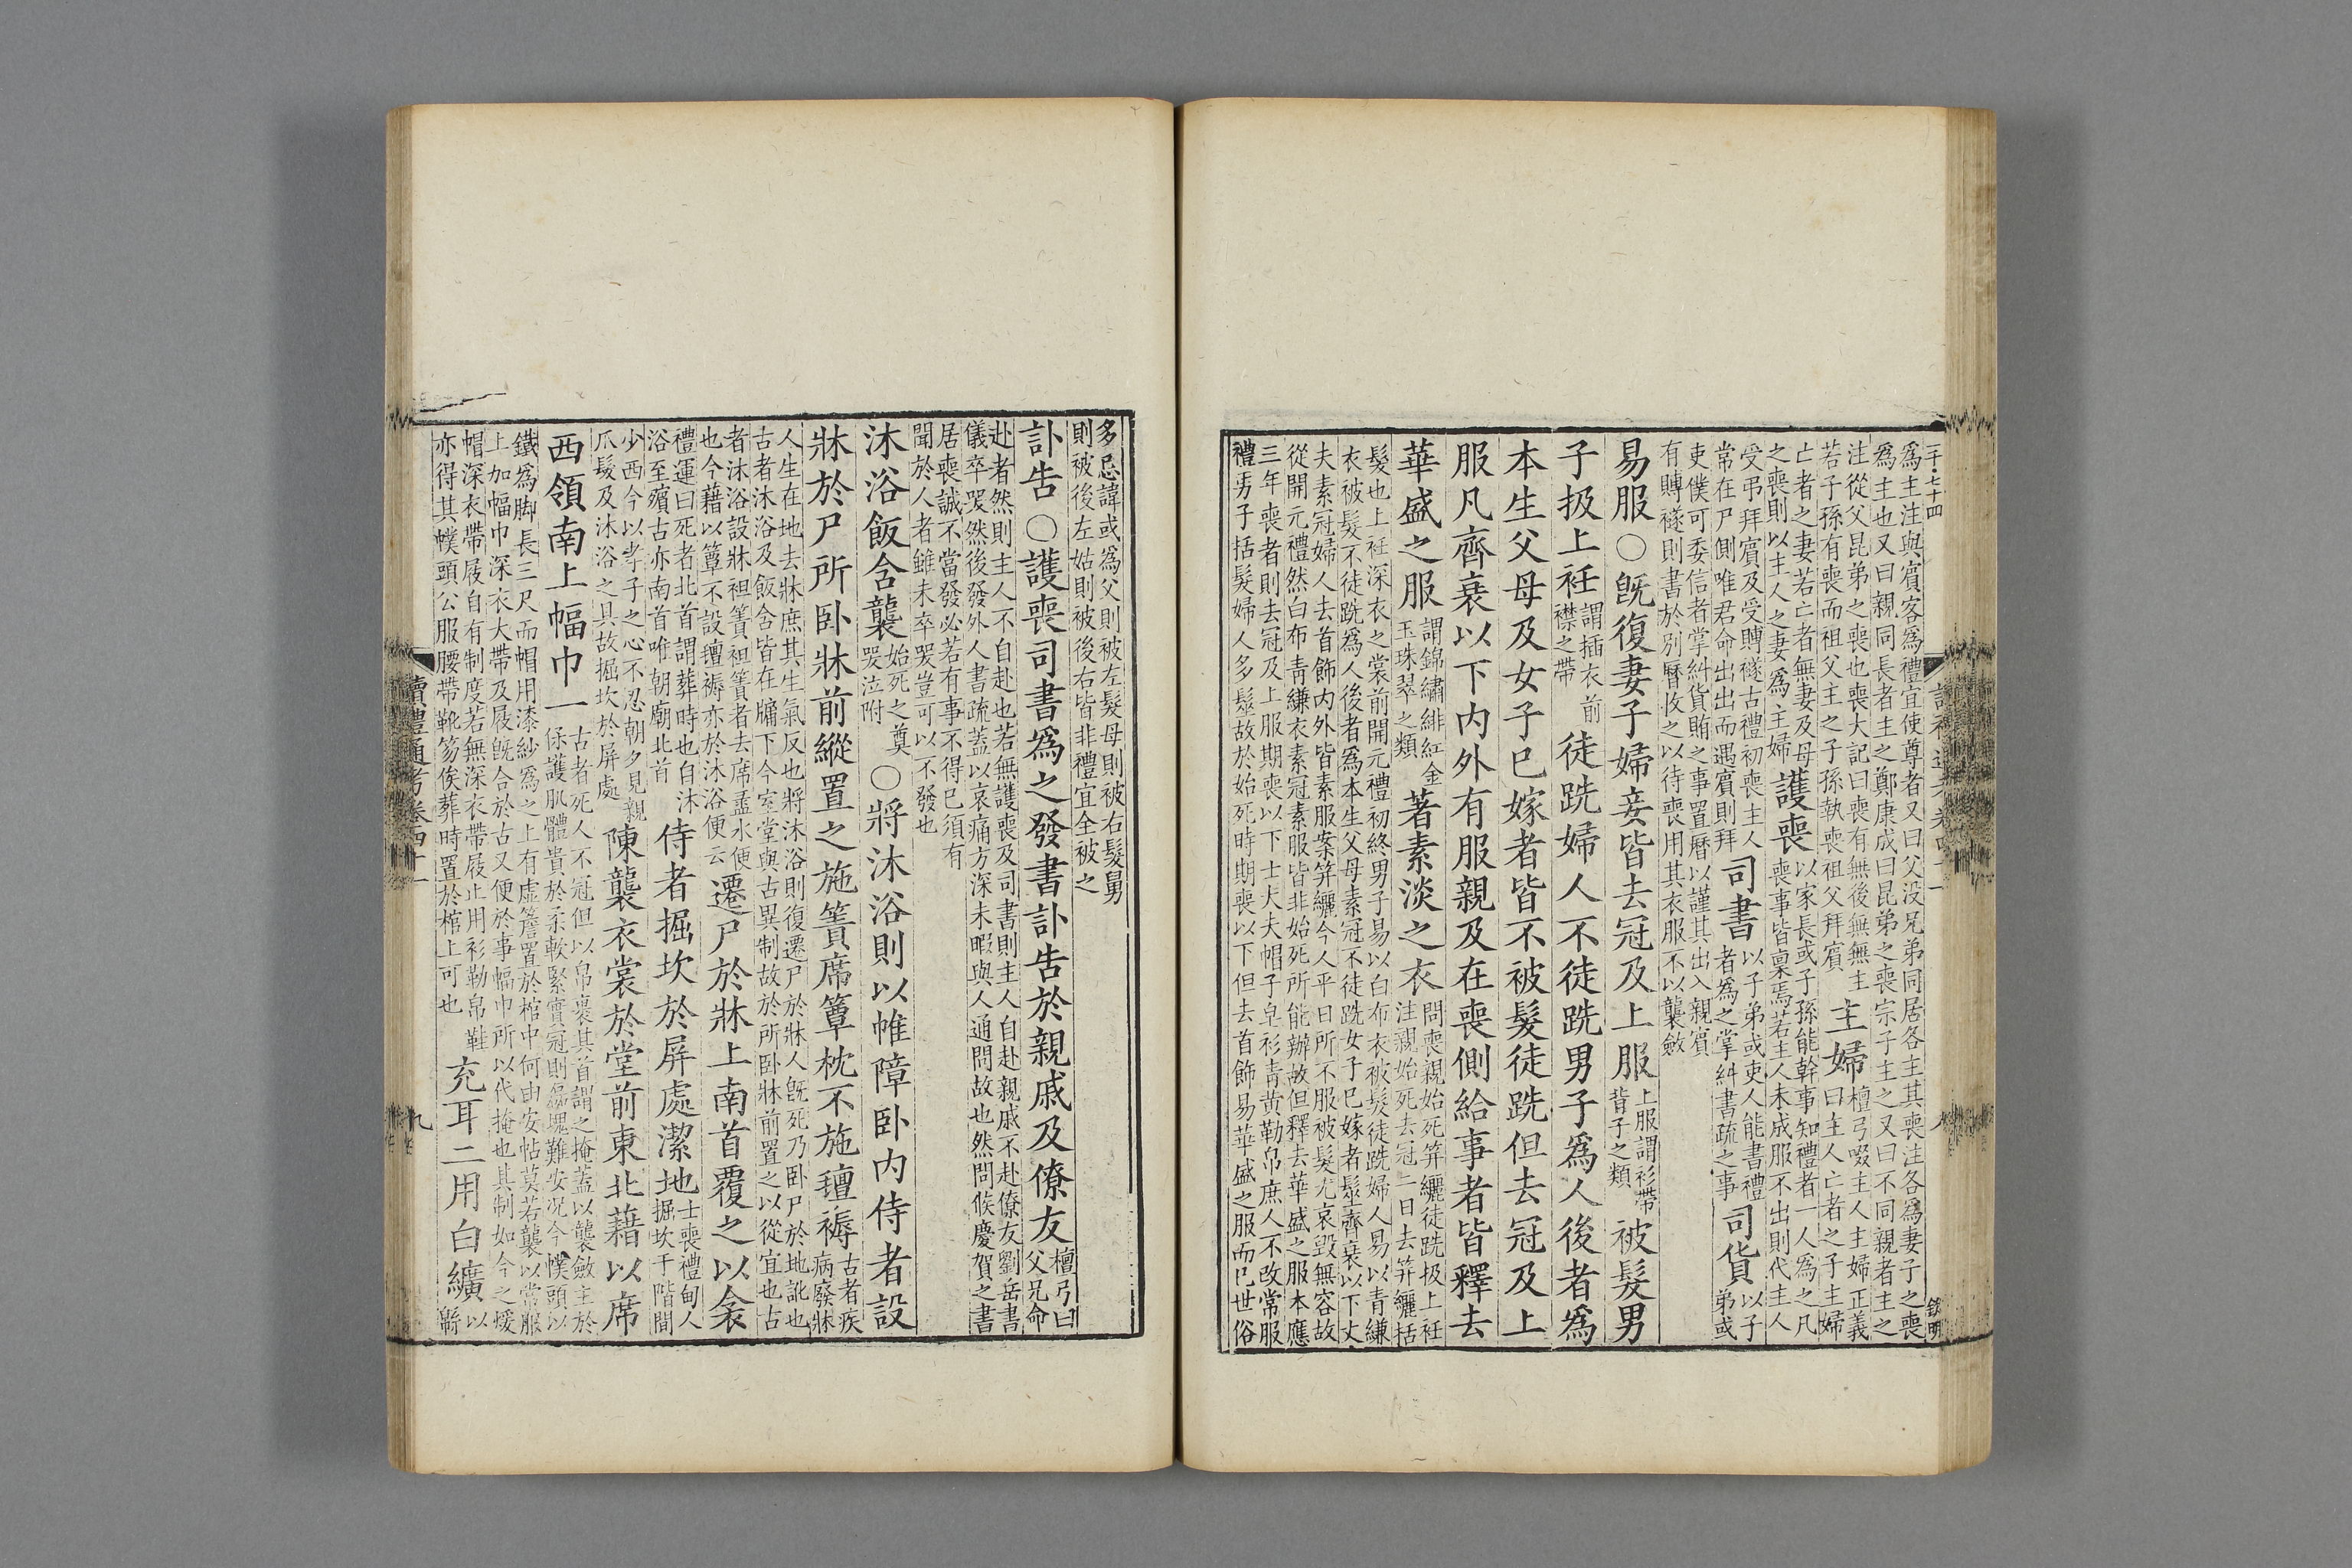 二千七十四
爲主注與賓客爲禮宜使尊者又曰父没兄弟同居各主其喪注各爲妻子之喪
爲主也又曰親同長者主之鄭康成曰昆弟之喪宗子主之又曰不同親者主之
注從父昆弟之喪也喪大記曰喪有無後無無主
若子孫有喪而祖父主之子孫執喪祖父拜賓
主婦
檀弓啜主人主婦正義
曰主人亡者之子主婦
亡者之妻若亡者無妻及母
之喪則以主人之妻爲主婦
護喪
以家長或子孫能幹事知禮者一人爲之凡
喪事皆稟焉若主人未成服不出則代主人
受弔拜賓及受賻襚古禮初喪主人
常在尸側唯君命出出而遇賓則拜
司書
以子弟或吏人能書禮
者爲之掌糾書疏之事
司貨
以子
弟或
吏僕可委信者掌糾貨賄之事置曆以謹其出入親賓
有賻襚則書於別曆收之以待喪用其衣服不以襲斂
易服〇旣復妻子婦妾皆去冠及上服
上服謂衫帶
背子之類
被髮男
子扱上衽
謂插衣前
襟之帶
徒跣婦人不徒跣男子爲人後者爲
本生父母及女子已嫁者皆不被髮徒跣但去冠及上
服凡齊衰以下内外有服親及在喪側給事者皆釋去
華盛之服
謂錦繡緋紅金
玉珠翠之類
著素淡之衣
問喪親始死笄纚徒跣扱上衽
注親始死去冠二日去笄纚括
髮也上衽深衣之裳前開元禮初終男子易以白布衣被髮徒跣婦人易以青縑
衣被髮不徒跣爲人後者爲本生父母素冠不徒跣女子已嫁者髽齊衰以下丈
夫素冠婦人去首飾内外皆素服案笄纚今人平日所不服被髮尤哀毀無容故
從開元禮然白布青縑衣素冠素服皆非始死所能辦故但釋去華盛之服本應
三年喪者則去冠及上服期喪以下士大夫帽子皂衫青黄勒帛庶人不改常服
禮男子括髮婦人多髽故於始死時期喪以下但去首飾易華盛之服而已世俗
多忌諱或爲父則被左髮母則被右髮舅
則被後左姑則被後右皆非禮宜全被之
訃告〇護喪司書爲之發書訃告於親戚及僚友
檀弓曰
父兄命
赴者然則主人不自赴也若無護喪及司書則主人自赴親戚不赴僚友劉岳書
儀卒哭然後發外人書疏蓋以哀痛方深未暇與人通問故也然問候慶賀之書
居喪誠不當發必若有事不得已須有
聞於人者雖未卒哭豈可以不發也
沐浴飯含襲
始死之奠
哭泣附
〇將沐浴則以帷障卧内侍者設
牀於尸所卧牀前縱置之施簀席簟枕不施氊褥
古者疾
病廢牀
人生在地去牀庶其生氣反也將沐浴則復遷尸於牀人旣死乃卧尸於地訛也
古者沐浴及飯含皆在牖下今室堂與古異制故於所卧牀前置之以從宜也古
者沐浴設牀袒簀袒簀者去席盝水便
也今藉以簟不設氊褥亦於沐浴便云
遷尸於牀上南首覆之以衾
禮運曰死者北首謂葬時也自沐
浴至殯古亦南首唯朝廟北首
侍者掘坎於屏處潔地
士喪禮甸人
掘坎于階間
少西今以孝子之心不忍朝夕見親
爪髮及沐浴之具故掘坎於屏處
陳襲衣裳於堂前東北藉以席
西領南上幅巾一
古者死人不冠但以帛裹其首謂之掩蓋以襲斂主於
保護肌體貴於柔軟緊實冠則磊塊難安况今幞頭以
鐵爲脚長三尺而帽用漆紗爲之上有虚簷置於棺中何由安帖莫若襲以常服
上加幅巾深衣大帶及屐旣合於古又便於事幅巾所以代掩也其制如今之煖
帽深衣帶屐自有制度若無深衣帶屐止用衫勒帛鞋
亦得其幞頭公服腰帶靴笏俟葬時置於棺上可也
充耳二用白纊
以
緜
讀禮通考卷四十一
九